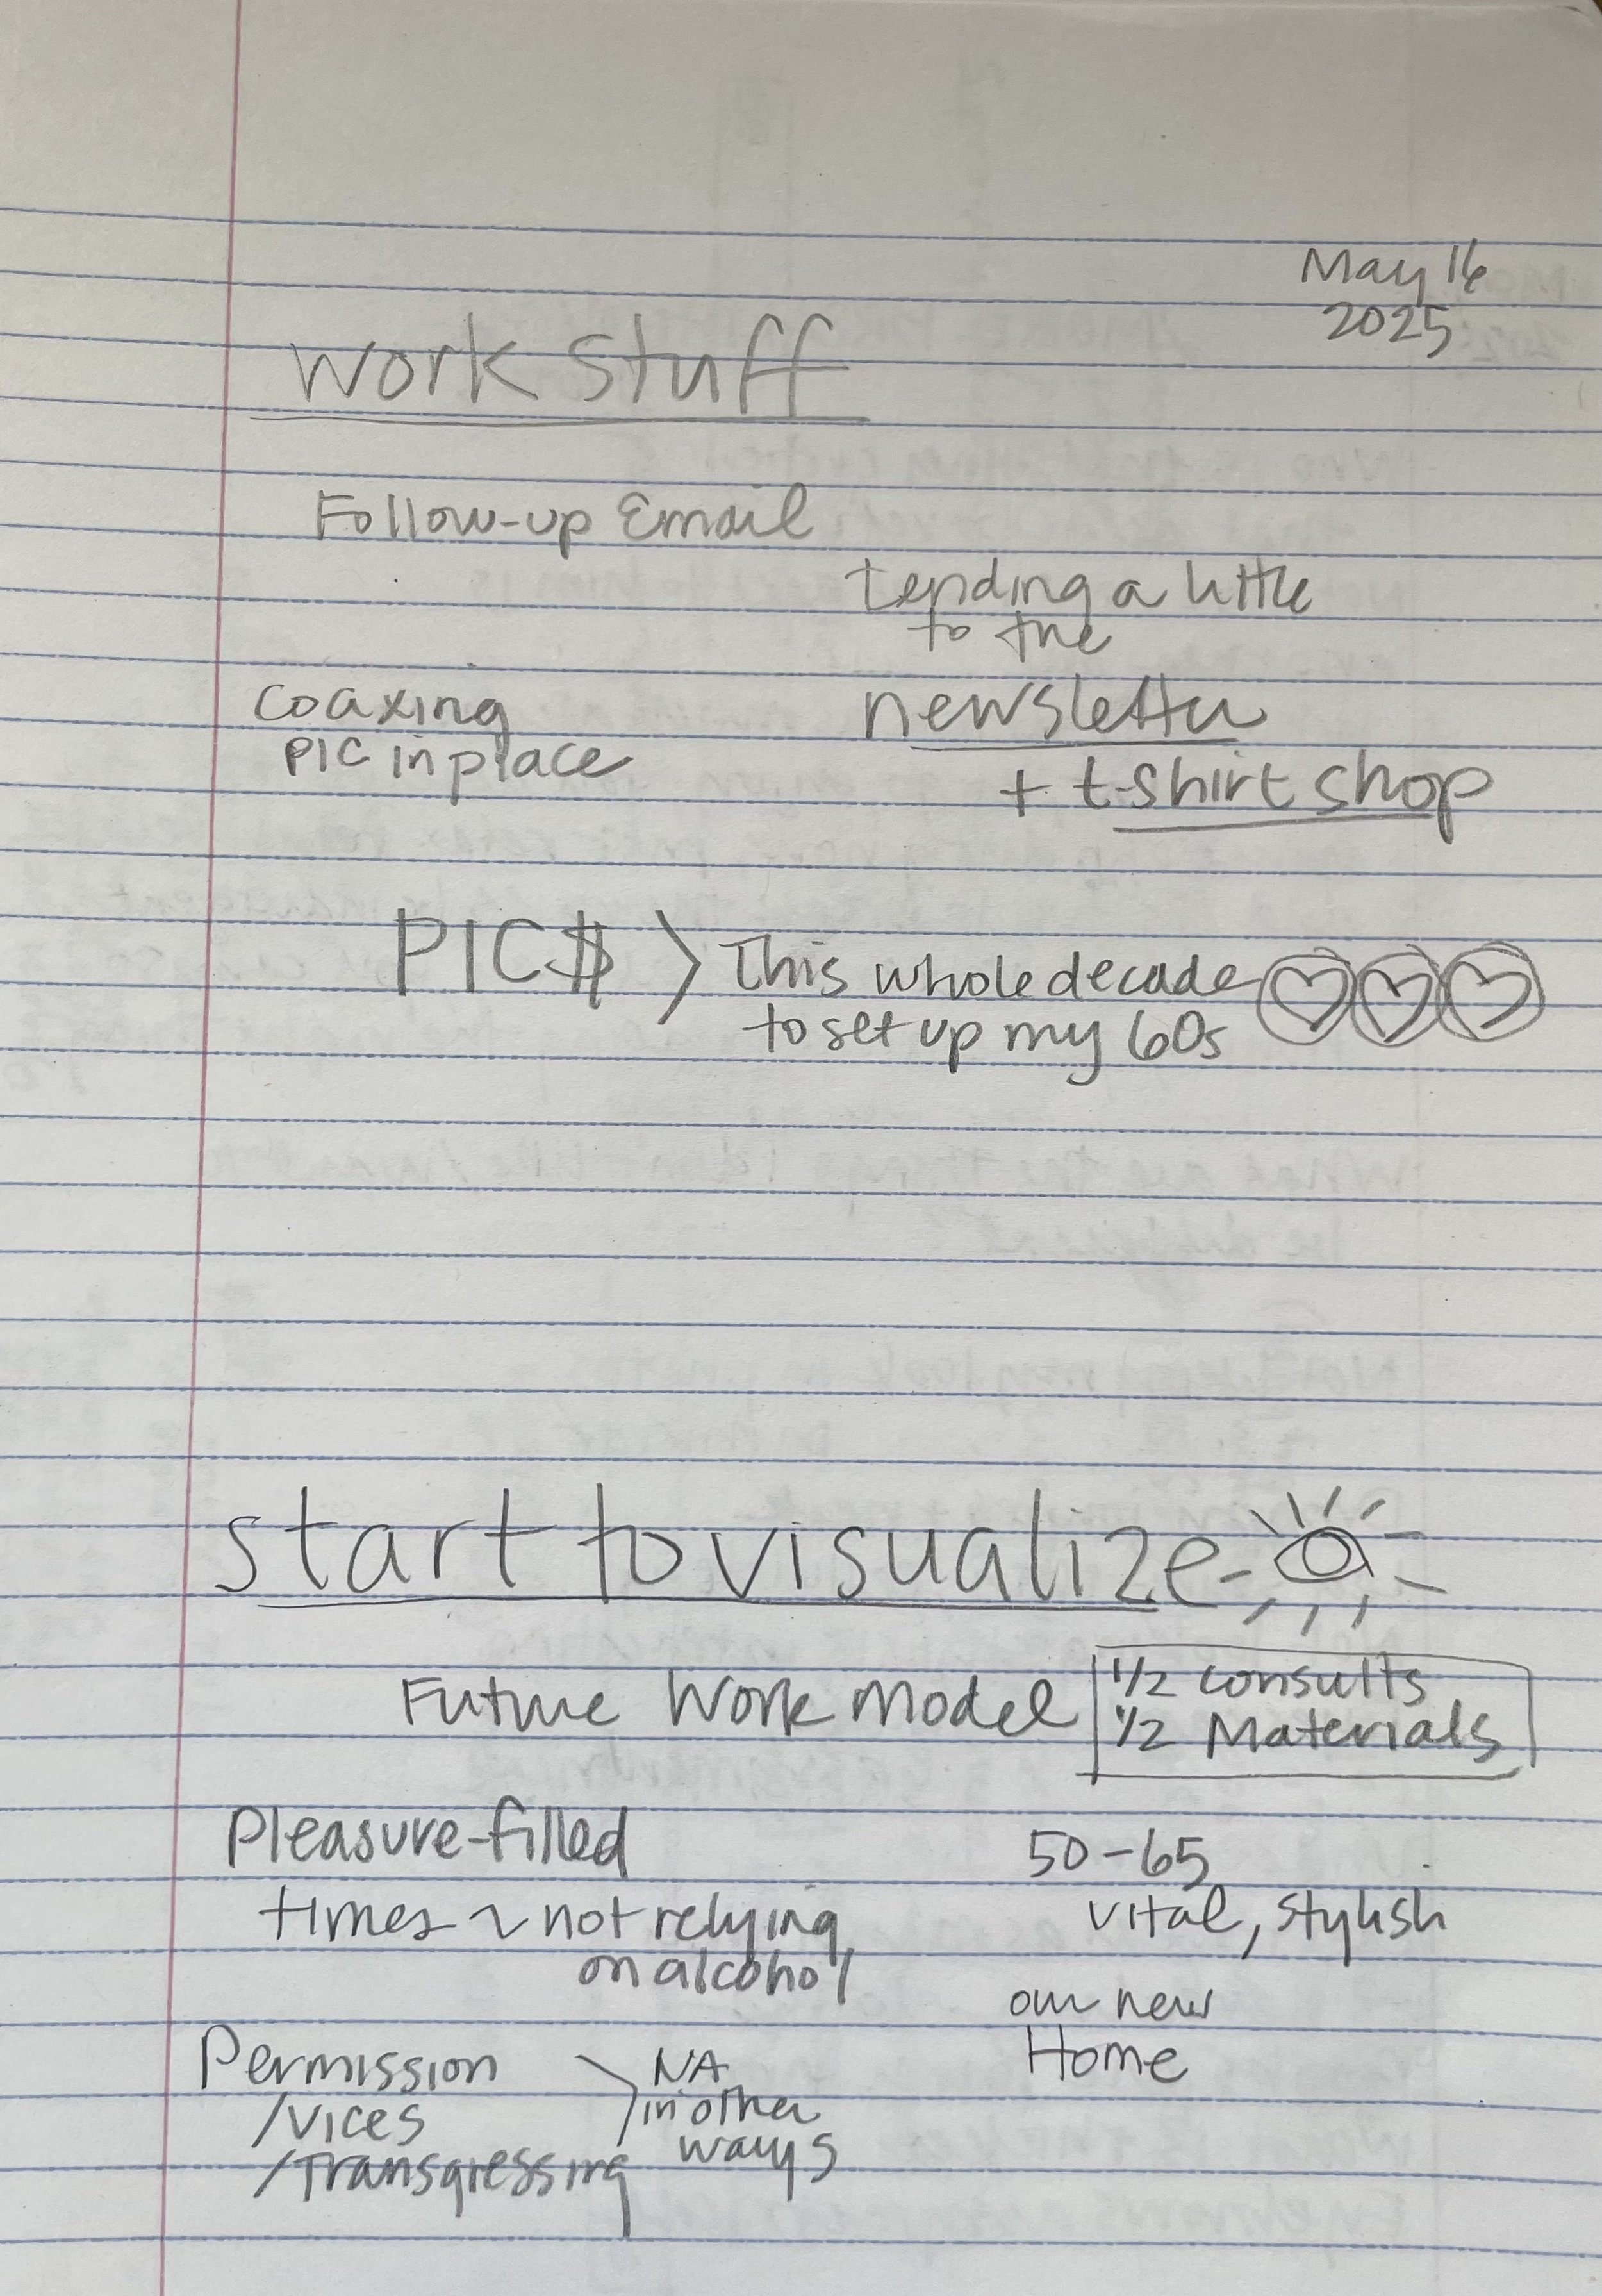 May 16
2025
work stuff
Follow-up Email
tending a little
to the
newsletter
+ t-shirt shop
coaxing
PIC in place
PIC$ > This whole decade
to set up my 60s
start to visualize
Future Work Model
1/2 consults
1/2 Materials
Pleasure-filled
times ~ not relying
on alcohol
50-65
vital, stylish
our new
Home
Permission
/vices
/Transgressing
NA
in other
ways